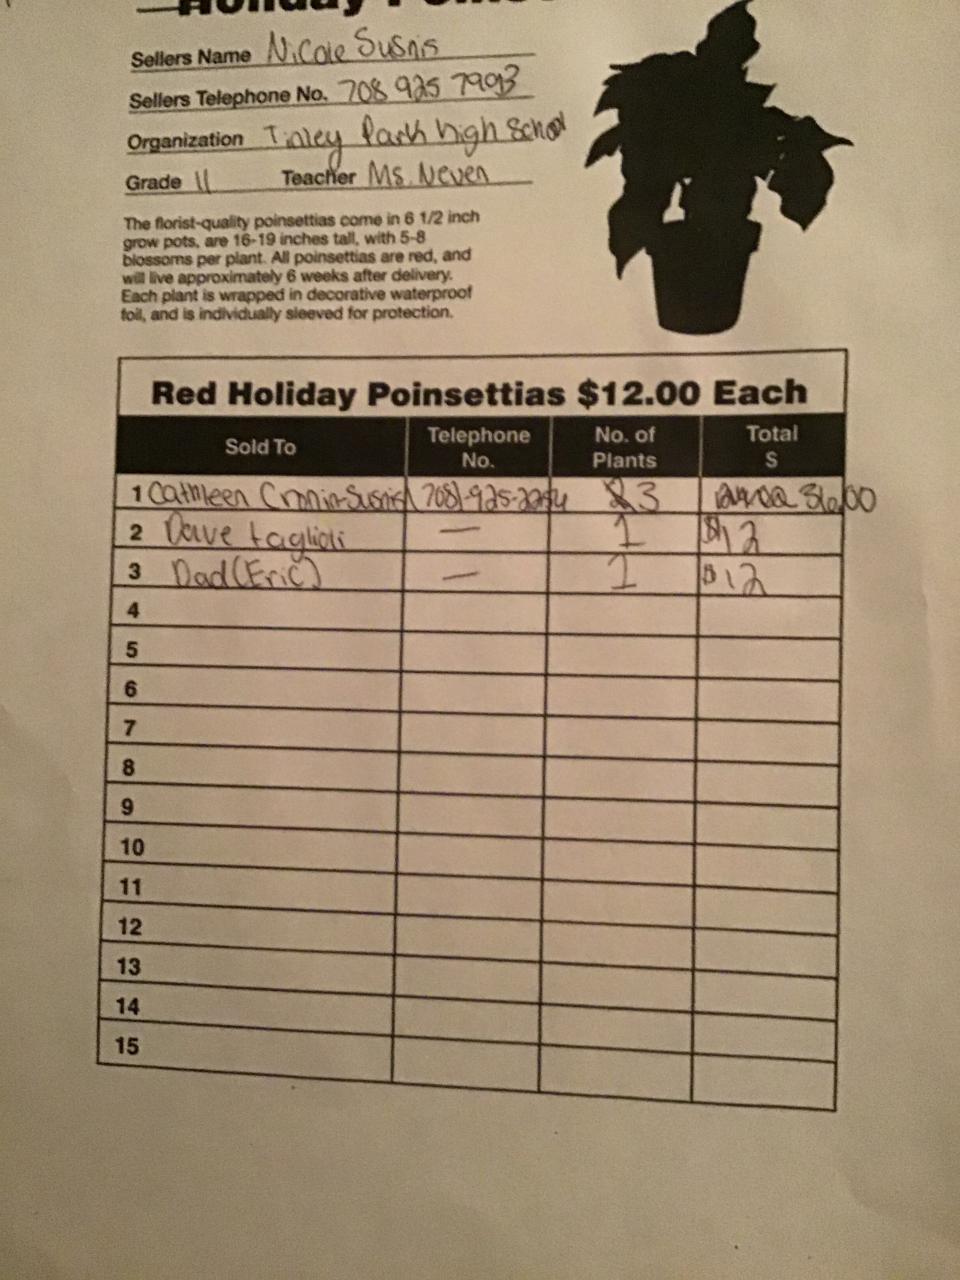 Holiday
Sellers Name Nicole Susnis
Sellers Telephone No. 708 925 7993
Organization Tinley Park high School
Grade 11 Teacher Ms. Neven
The florist-quality poinsettias come in 6 1/2 inch
grow pots, are 16-19 inches tall, with 5-8
blossoms per plant. All poinsettias are red, and
will live approximately 6 weeks after delivery.
Each plant is wrapped in decorative waterproof
foil, and is individually sleeved for protection.
Red Holiday Poinsettias $12.00 Each
Sold To Telephone No. No. of Plants Total $
1 Cathleen Cronin-Susnis 3 36.00
2 Dave taglioli — 1 $12
3 Dad(Eric) — 1 $12
4
5
6
7
8
9
10
11
12
13
14
15